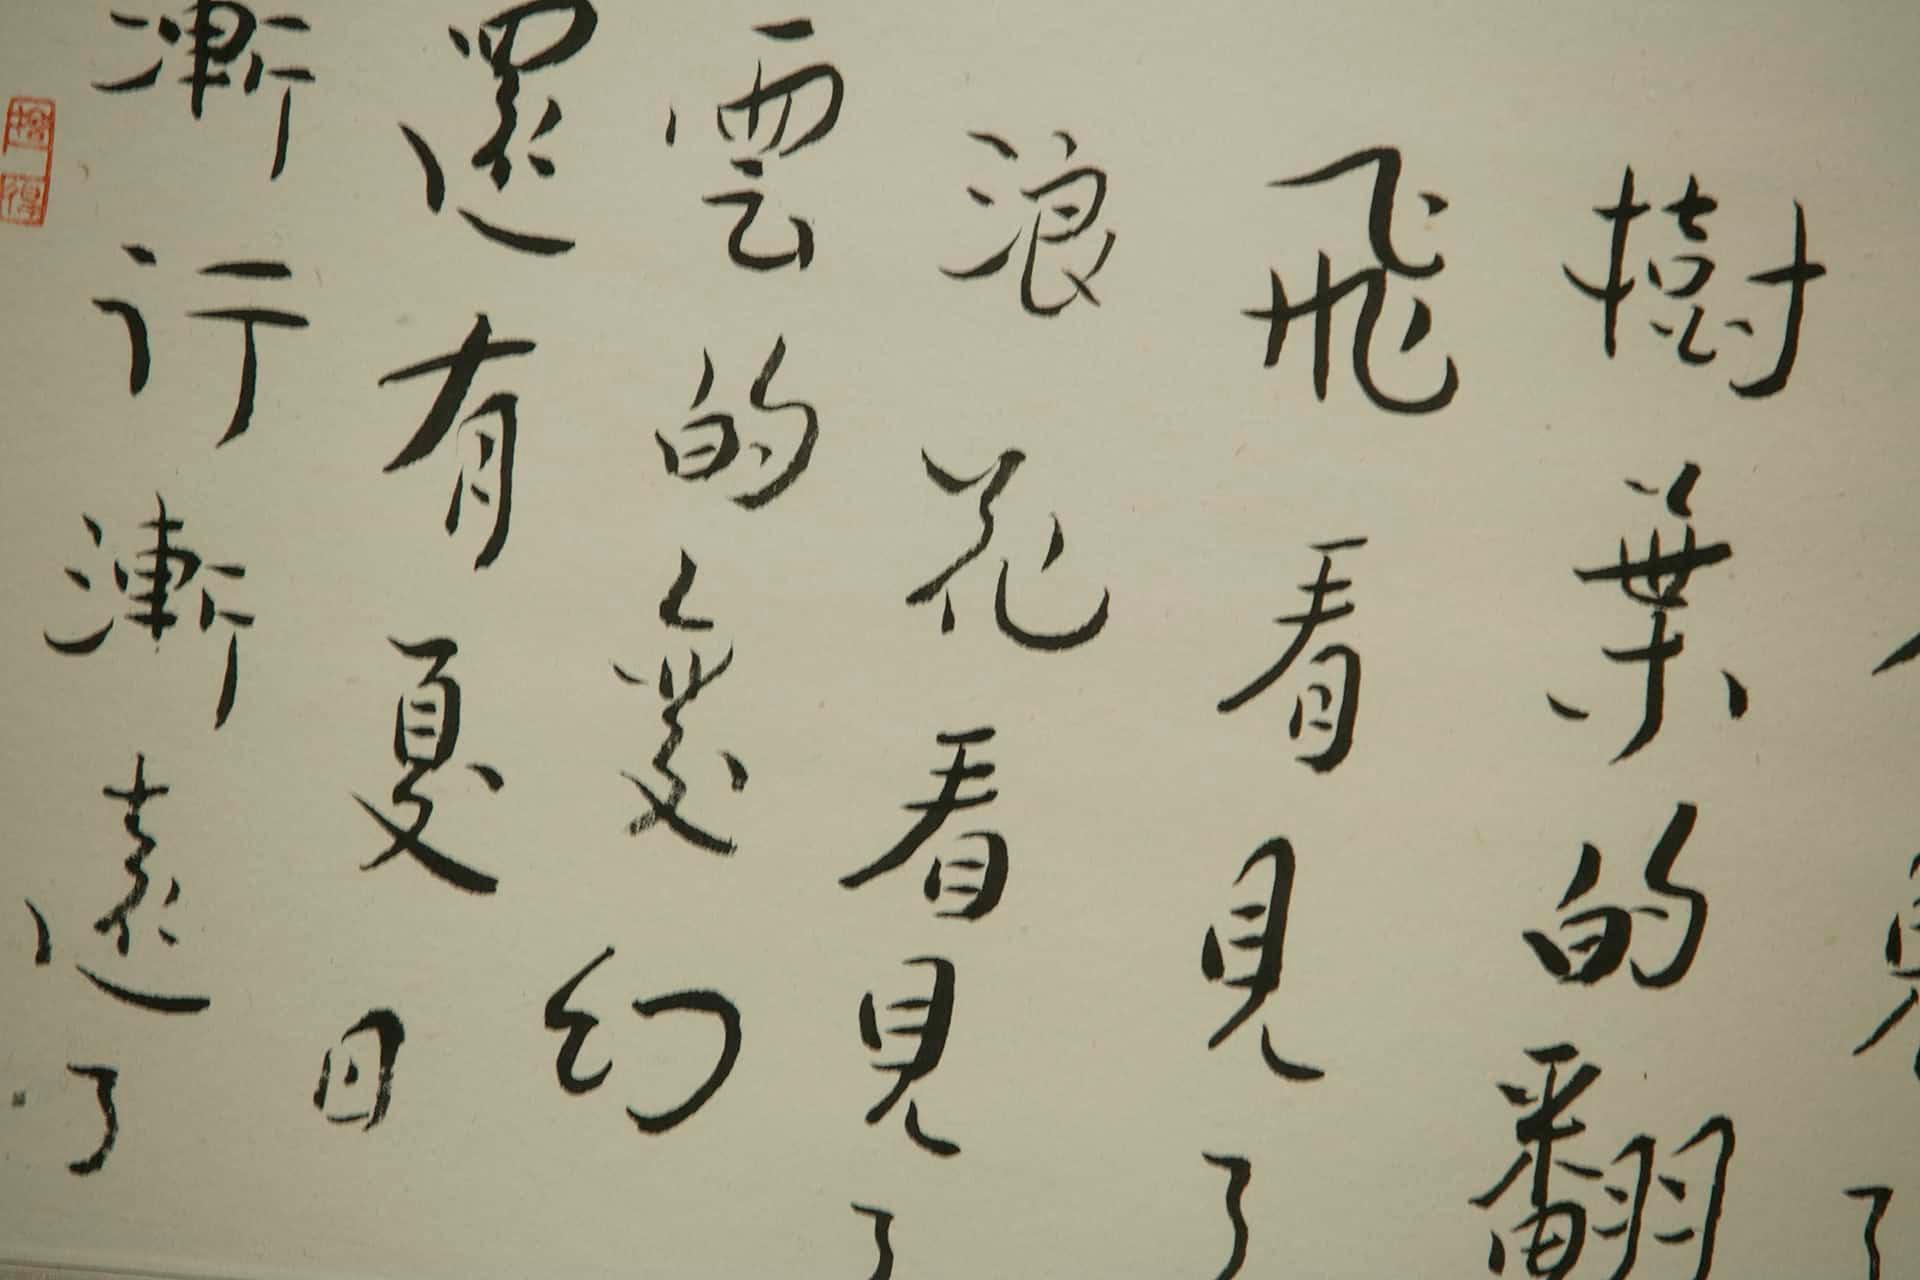 見了
樹葉的翻
飛看見了
浪花看見了
雲的變幻
還有夏日
漸行漸遠了